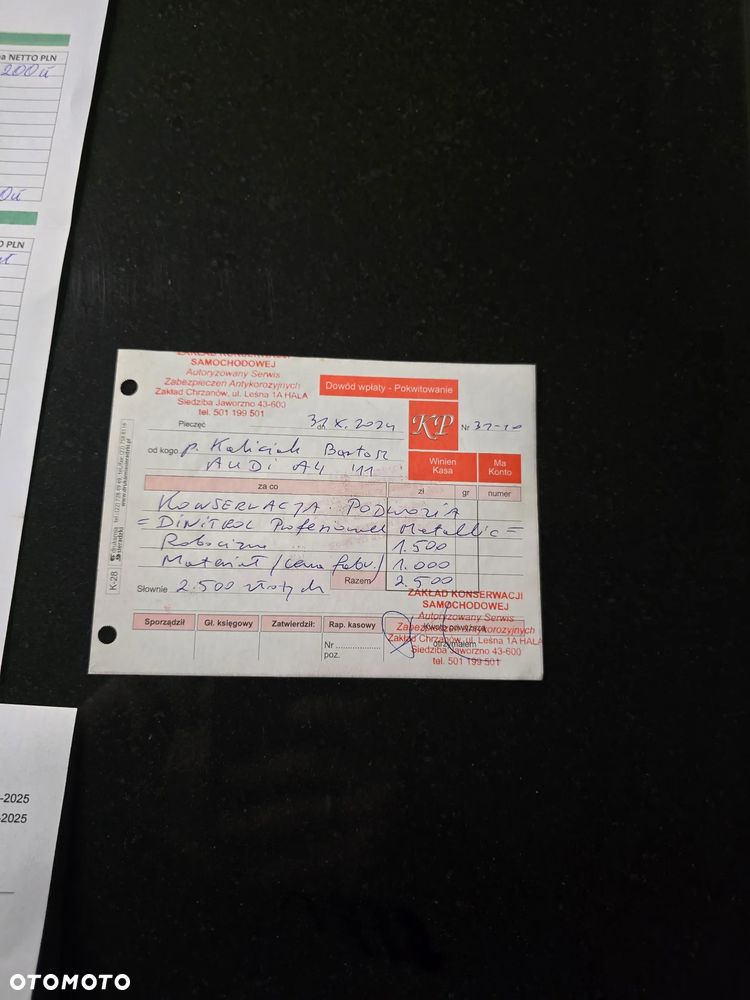 na NETTO PLN
200 zł
0 zł
O PLN
zł
ZAKŁAD KONSERWACJI
SAMOCHODOWEJ
Autoryzowany Serwis
Zabezpieczeń Antykorozyjnych
Zakład Chrzanów, ul. Leśna 1A HALA
Siedziba Jaworzno 43-600
tel. 501 199 501
Dowód wpłaty - Pokwitowanie
Pieczęć
dn. 31.X.2024
KP
Nr 31-10
od kogo p. Kaliciak Bartosz
AUDI A4 '11
Winien Kasa
Ma Konto
za co zł gr numer
KONSERWACJA PODWOZIA
= DINITROL Profesional Metallic =
Robocizna 1.500
Materiał /cena fabr./ 1.000
Razem 2.500
Słownie 2.500 złotych
ZAKŁAD KONSERWACJI
SAMOCHODOWEJ
Autoryzowany Serwis
Zabezpieczeń Antykorozyjnych
Zakład Chrzanów, ul. Leśna 1A HALA
Siedziba Jaworzno 43-600
tel. 501 199 501
Sporządził Gł. księgowy Zatwierdził: Rap. kasowy Kwotę powyższą
otrzymałem
Nr ................
poz.
K-28
-2025
-2025
OTOMOTO